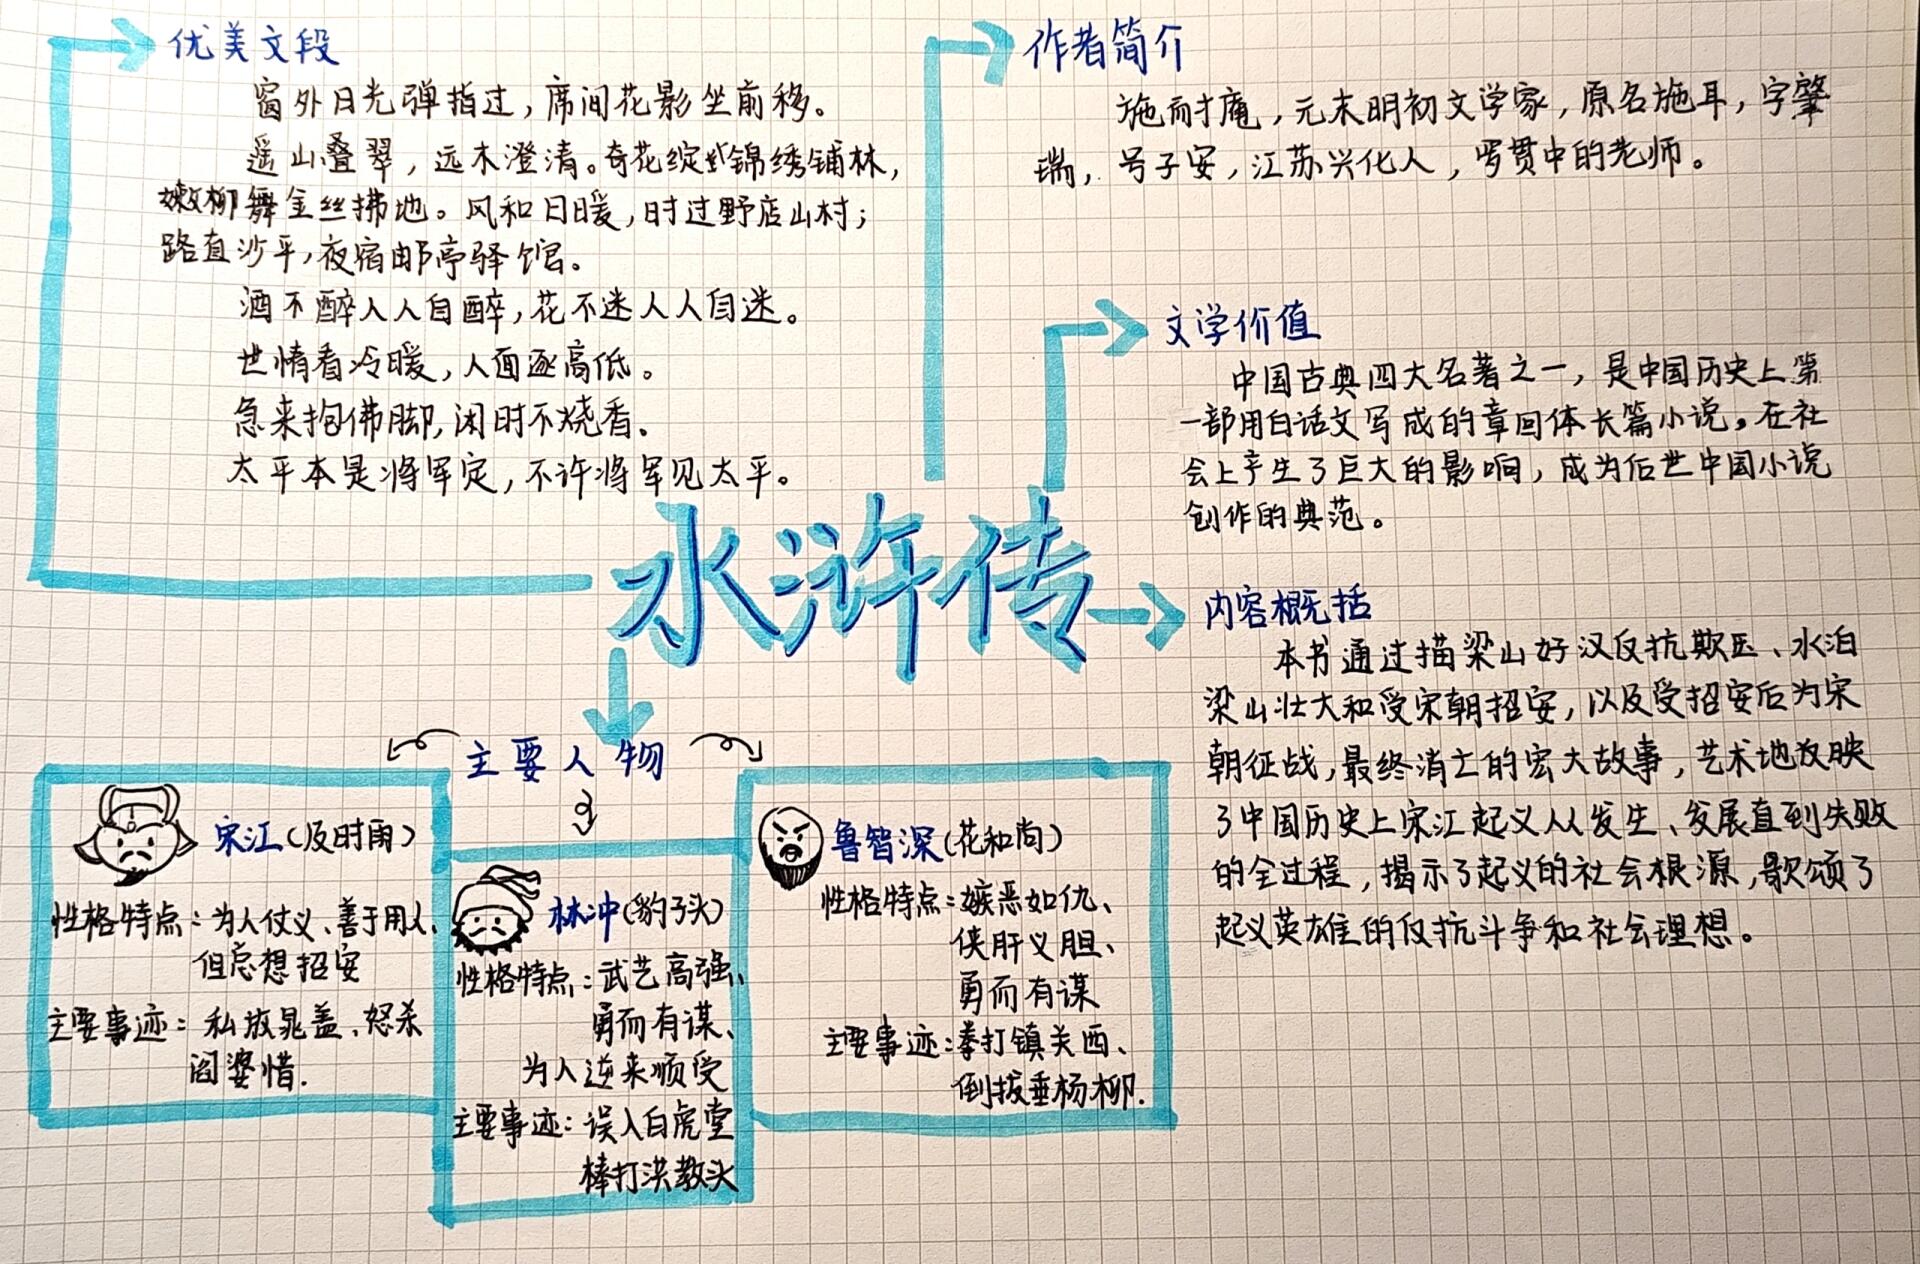 优美文段
窗外日光弹指过，席间花影坐前移。
遥山叠翠，远水澄清。奇花绽锦绣铺林，
嫩柳舞金丝拂地。风和日暖，时过野店山村；
路直沙平，夜宿邮亭驿馆。
酒不醉人人自醉，花不迷人人自迷。
世情看冷暖，人面逐高低。
急来抱佛脚，闲时不烧香。
太平本是将军定，不许将军见太平。
作者简介
施耐庵，元末明初文学家，原名施耳，字肇
瑞，号子安，江苏兴化人，贯中的老师。
文学价值
中国古典四大名著之一，是中国历史上第
一部用白话文写成的章回体长篇小说。在社
会上产生了巨大的影响，成为后世中国小说
创作的典范。
水浒传
内容概括
本书通过描梁山好汉反抗欺压、水泊
梁山壮大和受宋朝招安，以及受招安后为宋
朝征战，最终消亡的宏大故事，艺术地反映
了中国历史上宋江起义从发生、发展直到失败
的全过程，揭示了起义的社会根源，歌颂了
起义英雄的反抗斗争和社会理想。
主要人物
宋江(及时雨)
性格特点：为人仗义、善于用人、
但总想招安
主要事迹：私放晁盖、怒杀
阎婆惜.
林冲(豹子头)
性格特点：武艺高强、
勇而有谋、
为人逆来顺受
主要事迹：误入白虎堂
棒打洪教头
鲁智深(花和尚)
性格特点：嫉恶如仇、
侠肝义胆、
勇而有谋
主要事迹：拳打镇关西、
倒拔垂杨柳.